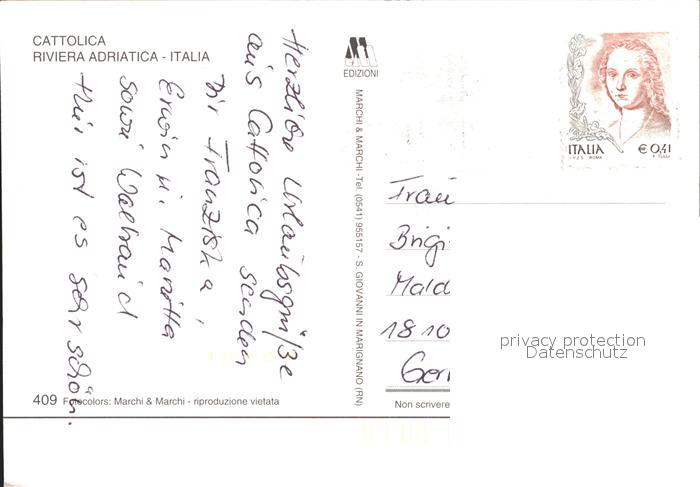 CATTOLICA
RIVIERA ADRIATICA - ITALIA
EDIZIONI
Herzliche Urlaubsgrüße
aus Cattolica senden
Dir Franziska,
Erwin u. Marietta
sowie Waltraud
Hier ist es sehr schön.
MARCHI & MARCHI - Tel. (0541) 955157 - S. GIOVANNI IN MARIGNANO (RN)
ITALIA € 0,41
I.P.Z.S. ROMA F. TULLI
Frau
Brigi
Mald
1810
Ger
privacy protection
Datenschutz
409 Fotocolors: Marchi & Marchi - riproduzione vietata
Non scrivere